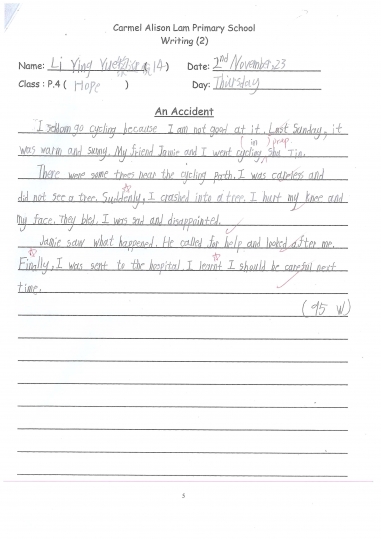 Carmel Alison Lam Primary School
Writing (2)
Name: Li Ying Yuet (14) Date: 2nd November, 23
Class : P.4 ( Hope ) Day: Thursday
An Accident
I seldom go cycling because I am not good at it. Last Sunday, it
( in ) prep
was warm and sunny. My friend Jamie and I went cycling Sha Tin.
There were some trees near the cycling path. I was careless and
did not see a tree. Suddenly, I crashed into a tree. I hurt my knee and
my face. They bled. I was sad and disappointed.
Jamie saw what happened. He called for help and looked after me.
Finally, I was sent to the hospital. I learnt I should be careful next
time.
(95 W)
5